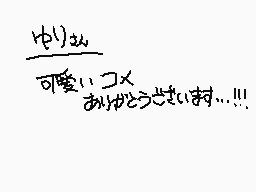 ゆりさん
可愛いコメ
ありがとうございます...!!!